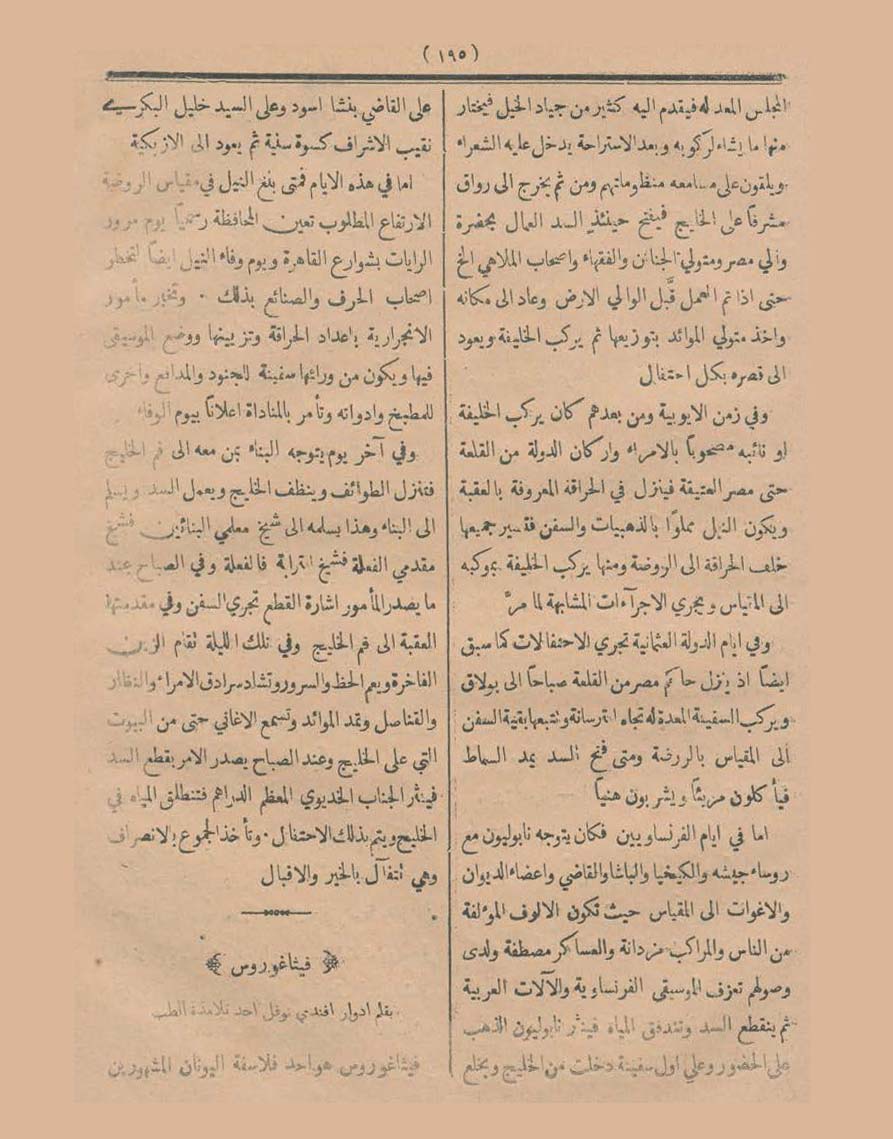 ( ١٩٥ )
المجلس المعد له فيقدم اليه كثير من جياد الخيل فيختار
منها ما يشاء لركوبه وبعد الاستراحة يدخل عليه الشعراء
ويلقون على مسامعه منظوماتهم ومن ثم يخرج الى رواق
مشرفاً على الخليج فيفتح حينئذ السد العمال بحضرة
والي مصر ومتولي الجنائن والفقهاء واصحاب الملاهي الخ
حتى اذا تم العمل قبل الوالي الارض وعاد الى مكانه
واخذ متولي الموائد بتوزيعها ثم يركب الخليفة ويعود
الى قصره بكل احتفال
وفي زمن الايوبية ومن بعدهم كان يركب الخليفة
او نائبه مصحوباً بالامراء واركان الدولة من القلعة
حتى مصر العتيقة فينزل في الحراقة المعروفة بالعقبة
ويكون النيل مملوًا بالذهبيات والسفن فتسير جميعها
خلف الحراقة الى الروضة ومنها يركب الخليفة بموكبه
الى المقياس ويجري الاجراءات المشابهة لما مرَّ
وفي ايام الدولة العثمانية تجري الاحتفالات كما سبق
ايضاً اذ ينزل حاكم مصر من القلعة صباحاً الى بولاق
ويركب السفينة المعدة له تجاه الترسانة وتتبعها بقية السفن
الى المقياس بالروضة ومتى فتح السد يمد السماط
فيأكلون مريئاً ويشربون هنياً
اما في ايام الفرنساويين فكان يتوجه نابوليون مع
روساء جيشه والكيخيا والباشا والقاضي واعضاء الديوان
والاغوات الى المقياس حيث تكون الالوف المؤلفة
من الناس والمراكب مزدانة والعساكر مصطفة ولدى
وصولهم تعزف الموسيقى الفرنساوية والآلات العربية
ثم ينقطع السد وتتدفق المياه فينثر نابوليون الذهب
على الحضور وعلى اول سفينة دخلت من الخليج ويخلع
على القاضي بنشا اسود وعلى السيد خليل البكري
نقيب الاشراف كسوة سنية ثم يعود الى الازبكية
اما في هذه الايام فمتى بلغ النيل في مقياس الروضة
الارتفاع المطلوب تعين المحافظة رسمياً يوم مرور
الرايات بشوارع القاهرة ويوم وفاء النيل ايضاً لتخطر
اصحاب الحرف والصنائع بذلك ٠ وتخبر مأمور
الانجرارية باعداد الحراقة وتزيينها ووضع الموسيقى
فيها ويكون من ورائها سفينة للجنود والمدافع واخرى
للمطبخ وادواته وتأمر بالمناداة اعلاناً بيوم الوفاء
وفي آخر يوم يتوجه البناء بمن معه الى فم الخليج
فتنزل الطوائف وينظف الخليج ويعمل السد ويسلم
الى البناء وهذا يسلمه الى شيخ معلمي البنائين فشيخ
مقدمي الفعلة فشيخ الترابة فالفعلة وفي الصباح عند
ما يصدر المأمور اشارة القطع تجري السفن وفي مقدمتها
العقبة الى فم الخليج وفي تلك الليلة تقام الزين
الفاخرة ويعم الحظ والسرور وتشاد سرادق الامراء والنظار
والقناصل وتمد الموائد وتسمع الاغاني حتى من البيوت
التي على الخليج وعند الصباح يصدر الامر بقطع السد
فينثر الجناب الخديوي المعظم الدراهم فتنطلق المياه في
الخليج ويتم بذلك الاحتفال ٠ وتأخذ الجموع بالانصراف
وهي تتفآل بالخير والاقبال
﴿ فيثاغوروس ﴾
بقلم ادوار افندي نوفل احد تلامذة الطب
فيثاغوروس هو احد فلاسفة اليونان المشهورين